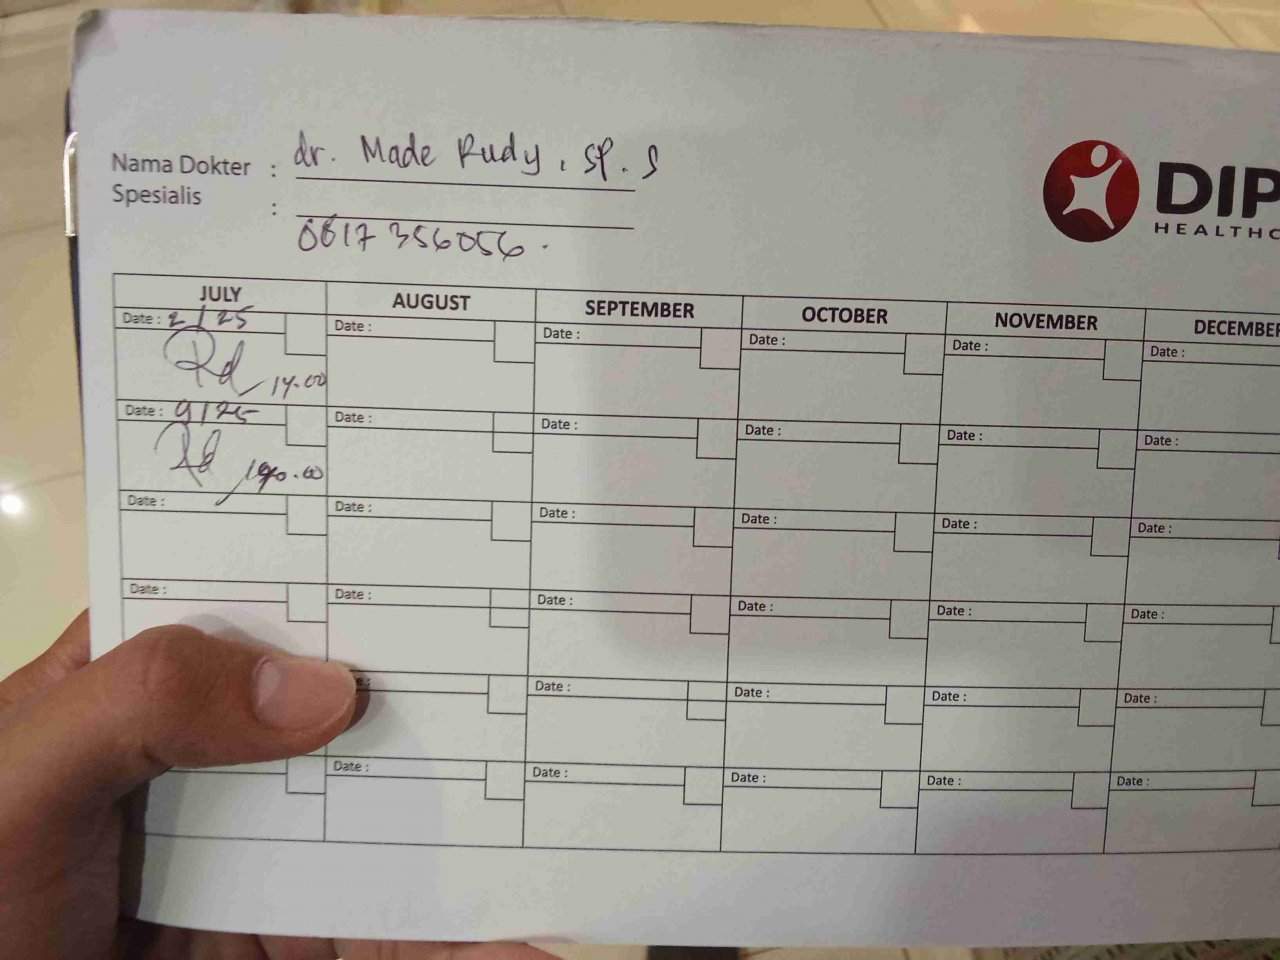 Nama Dokter : dr. Made Rudy, Sp.S
Spesialis :
0817 356056.
DIP
HEALTHC
JULY AUGUST SEPTEMBER OCTOBER NOVEMBER DECEMBER
Date : 2/25 Date : Date : Date : Date : Date :
14.00
Date : 9/25 Date : Date : Date : Date : Date :
Date : Date : Date : Date : Date : Date :
Date : Date : Date : Date : Date : Date :
Date : Date : Date : Date :
Date : Date : Date : Date : Date :